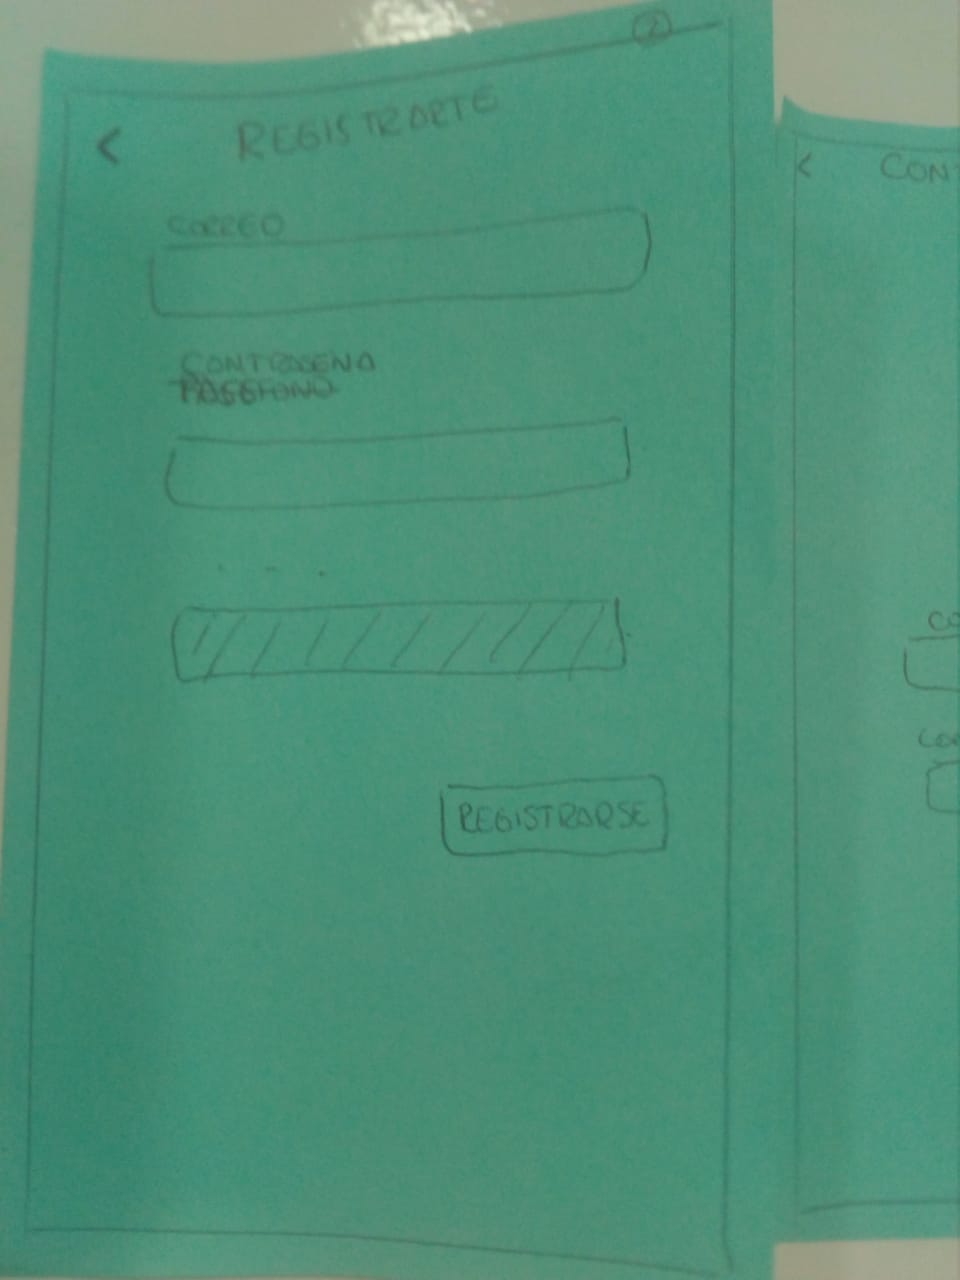 2
<
REGISTRARTE
CORREO
CONTRASENA
. - .
REGISTRARSE
<
CON
CO
CO